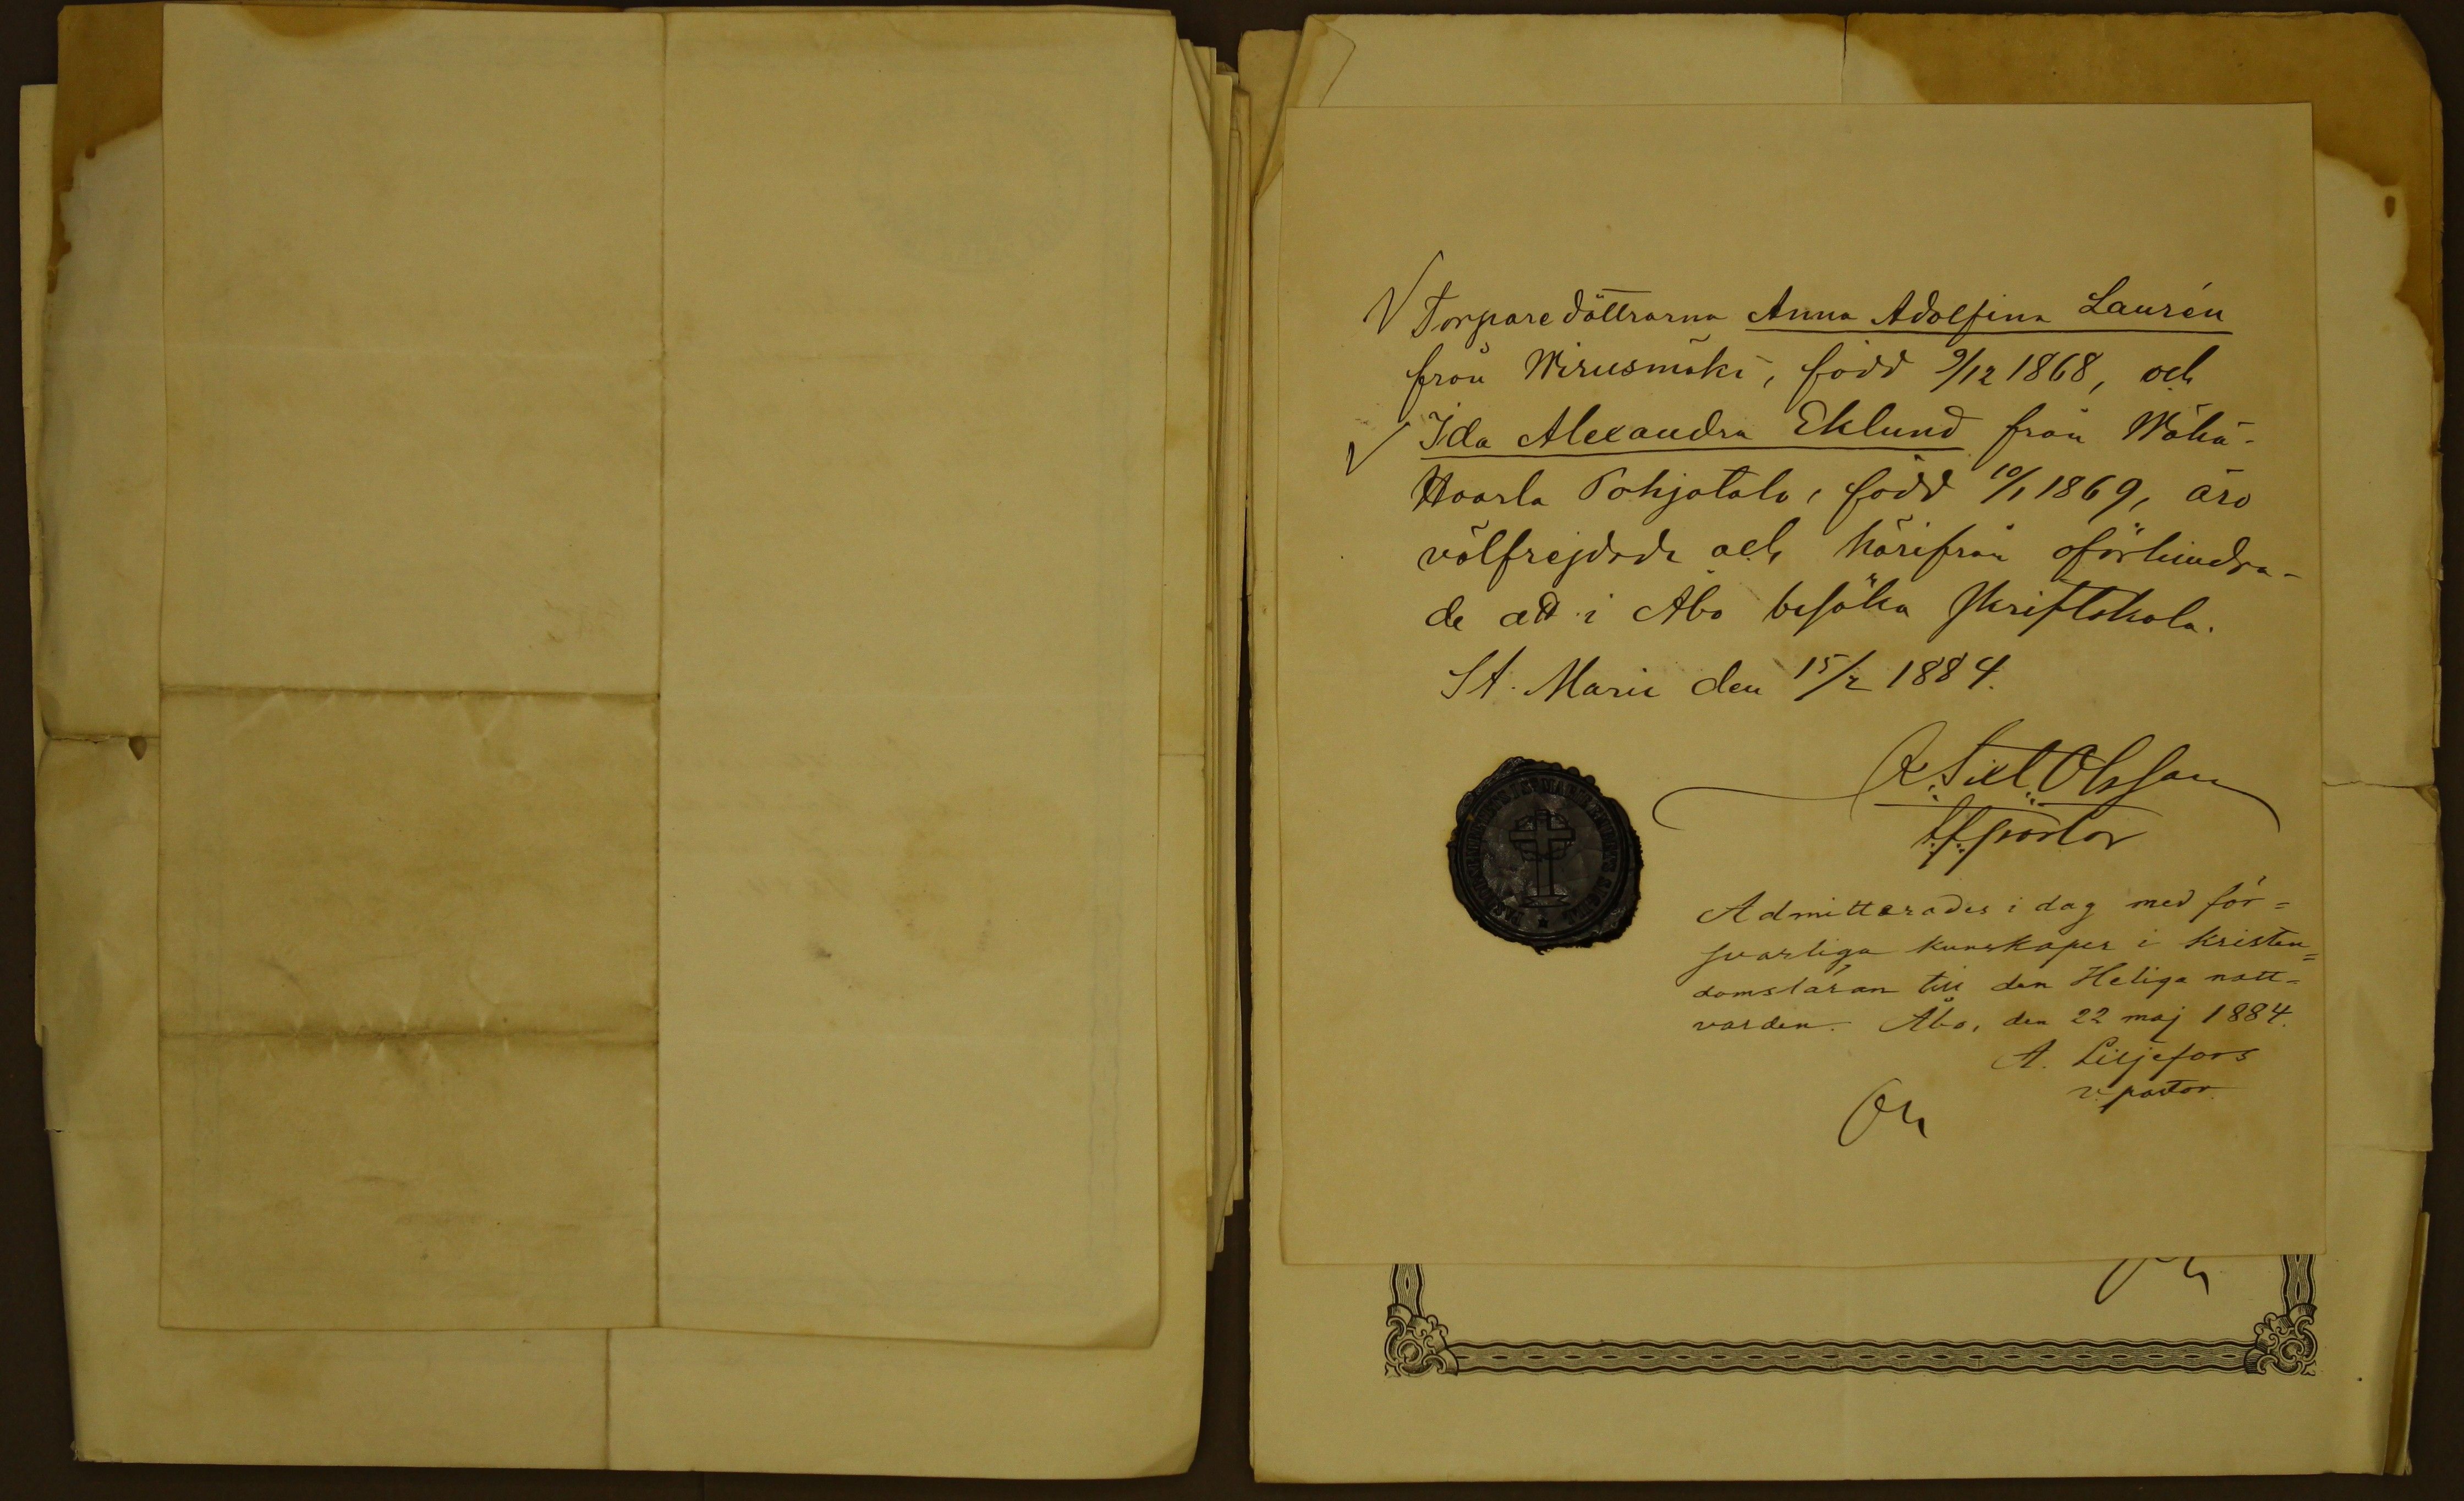 Torparedöttrarna Anna Adolfina Laurén
från Wirusmäki, född 9/12 1868, och
Ida Alexandra Eklund från Wähä-
Haarla Pohjatalo, född 10/1 1869, äro
välfrejdade och härifrån oförhindra-
de att i Åbo besöka skriftskola.
St. Marie den 15/2 1884.
Olsson
t.f. pastor
Admitterades i dag med för=
svarliga kunskaper i kristen=
domsläran till den Heliga natt-
varden. Åbo, den 22 maj 1884.
A. Liljefors
v. pastor